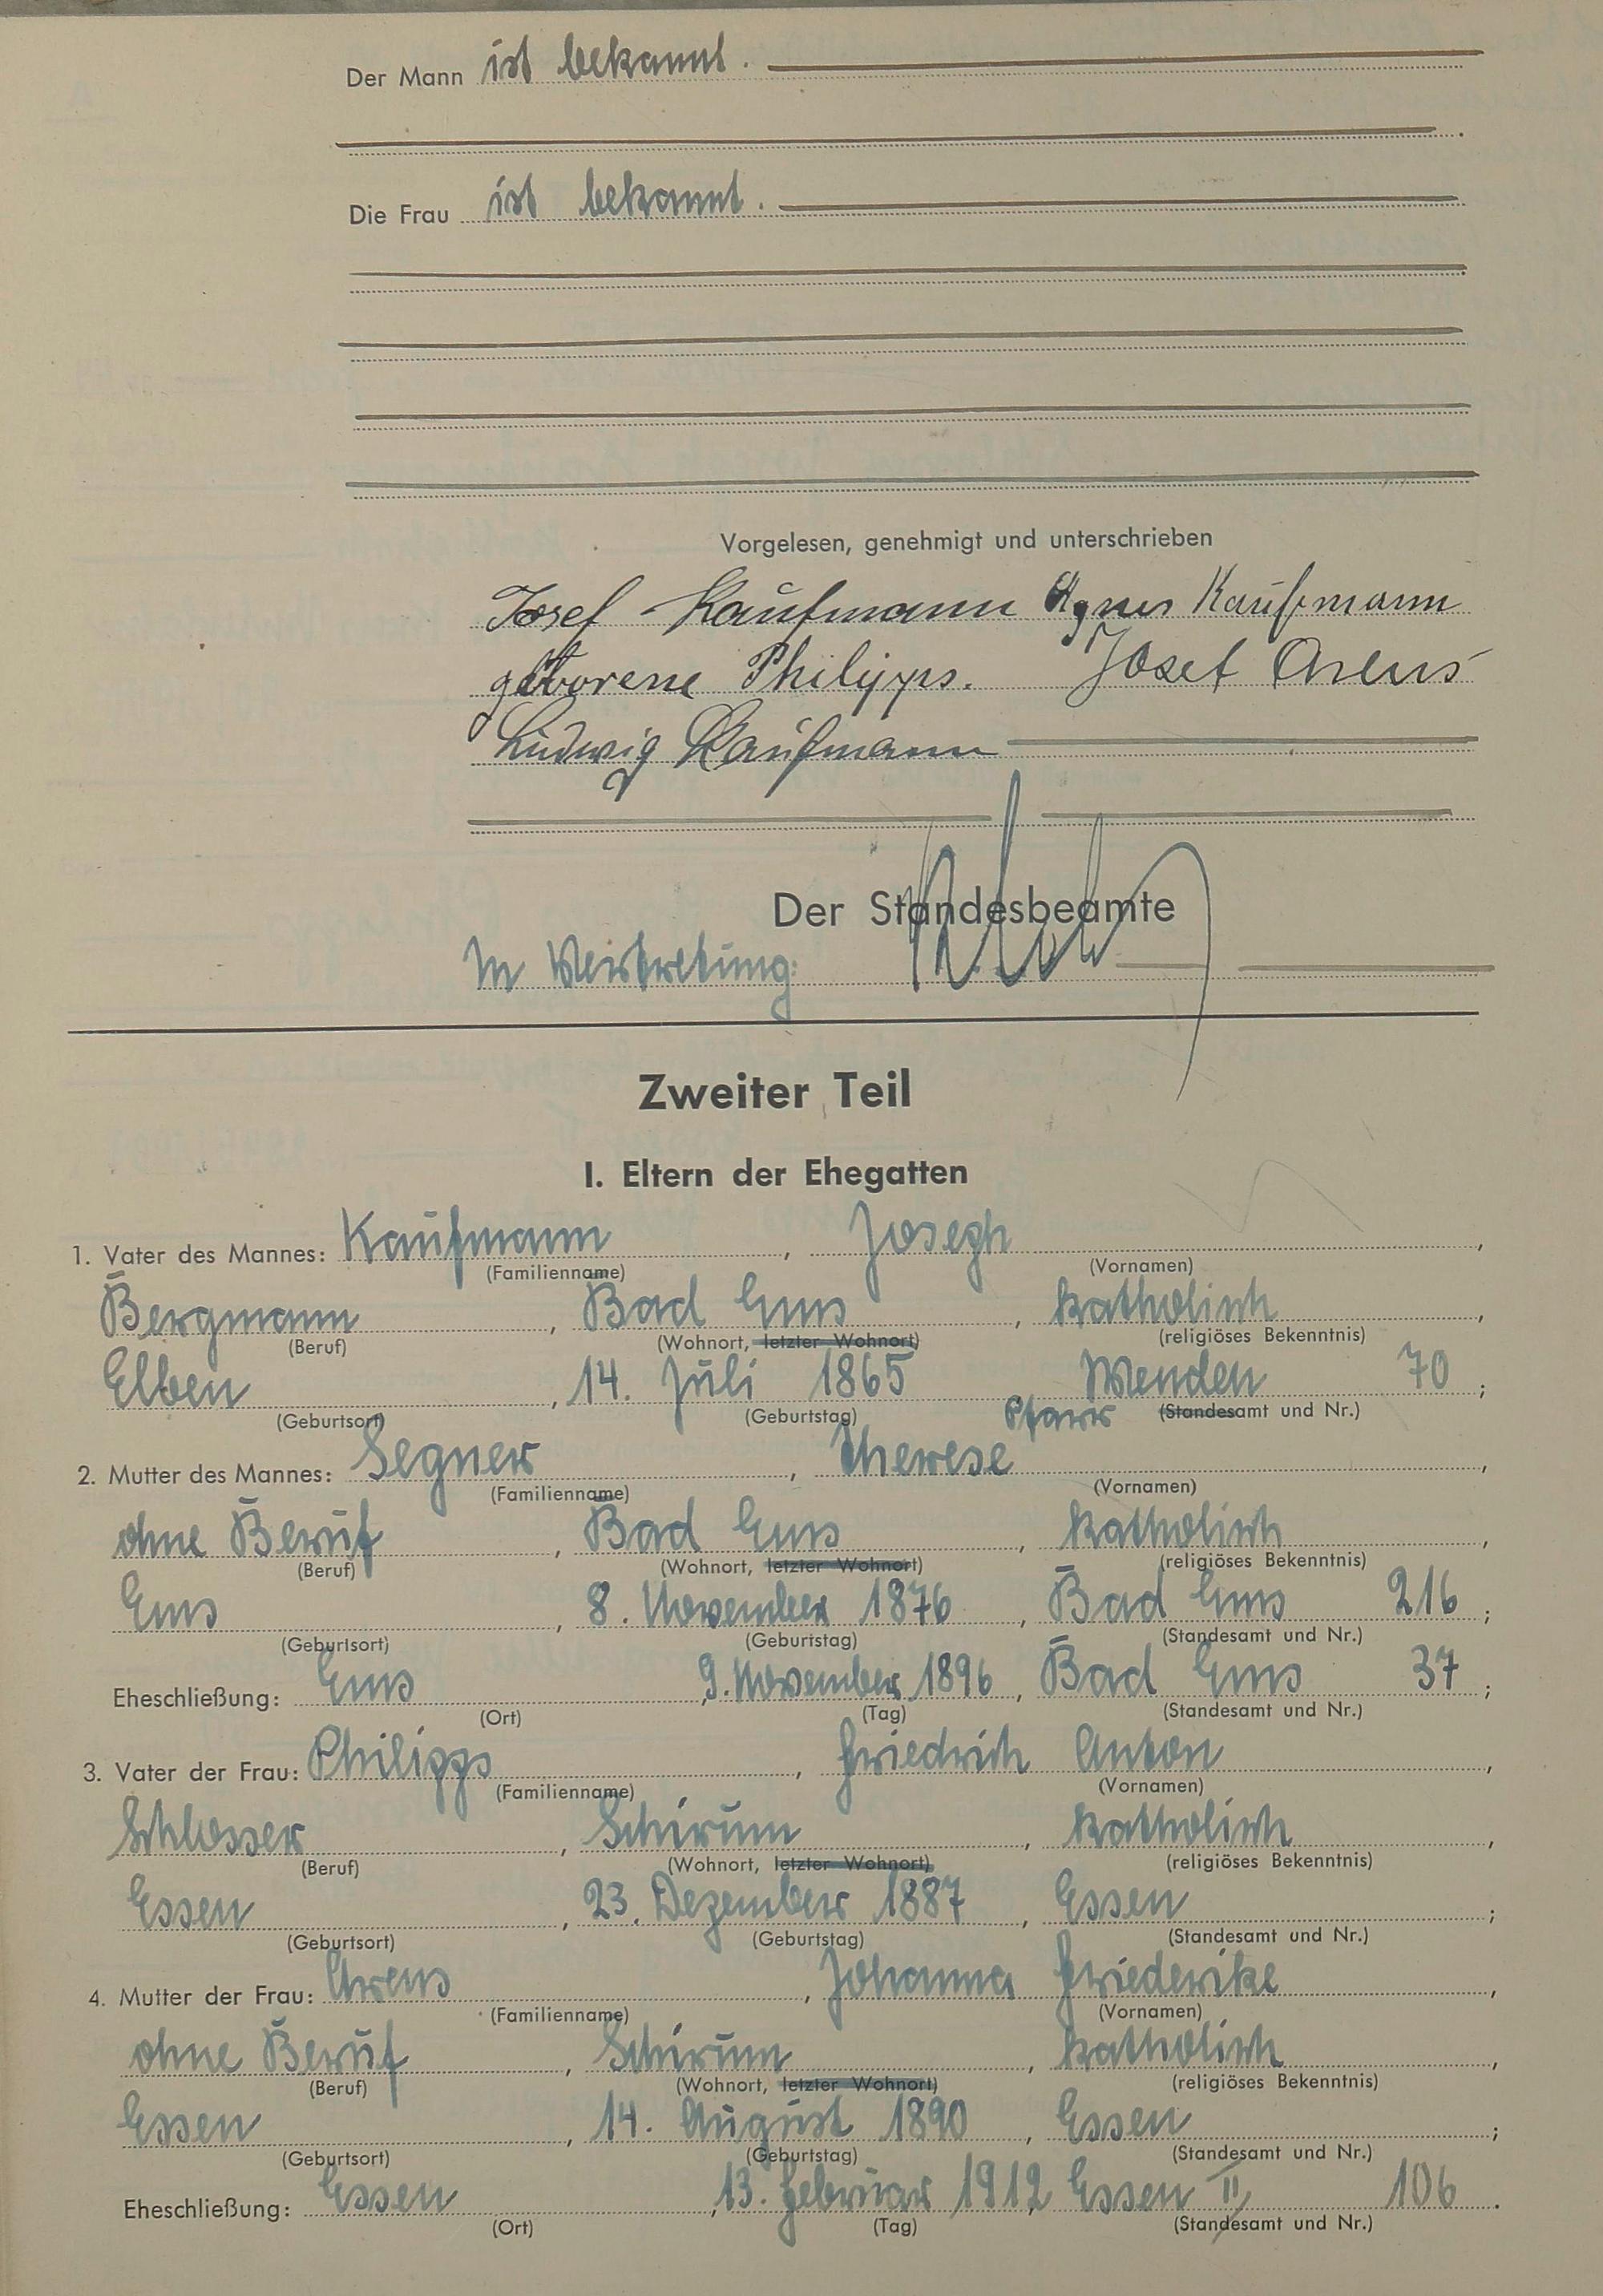 Der Mann ist bekannt.
Die Frau ist bekannt.
Vorgelesen, genehmigt und unterschrieben
Josef Kaufmann Agnes Kaufmann
geborene Philipps. Josef Arens
Ludwig Kaufmann
Der Standesbeamte
In Vertretung:
Zweiter Teil
I. Eltern der Ehegatten
1. Vater des Mannes: Kaufmann, Joseph
(Familienname) (Vornamen)
Bergmann, Bad Ems, katholisch,
(Beruf) (Wohnort, letzter Wohnort) (religiöses Bekenntnis)
Elben, 14. Juli 1865 Wenden 70;
(Geburtsort) (Geburtstag) Pfarr (Standesamt und Nr.)
2. Mutter des Mannes: Segner, Therese,
(Familienname) (Vornamen)
ohne Beruf, Bad Ems, katholisch,
(Beruf) (Wohnort, letzter Wohnort) (religiöses Bekenntnis)
Ems, 8. November 1876, Bad Ems 216;
(Geburtsort) (Geburtstag) (Standesamt und Nr.)
Eheschließung: Ems, 9. November 1896, Bad Ems 37;
(Ort) (Tag) (Standesamt und Nr.)
3. Vater der Frau: Philipps, Friedrich Anton,
(Familienname) (Vornamen)
Schlosser, Schirum, katholisch,
(Beruf) (Wohnort, letzter Wohnort) (religiöses Bekenntnis)
Essen, 23. Dezember 1887, Essen;
(Geburtsort) (Geburtstag) (Standesamt und Nr.)
4. Mutter der Frau: Arens, Johanna Friederike,
(Familienname) (Vornamen)
ohne Beruf, Schirum, katholisch,
(Beruf) (Wohnort, letzter Wohnort) (religiöses Bekenntnis)
Essen, 14. August 1890, Essen;
(Geburtsort) (Geburtstag) (Standesamt und Nr.)
Eheschließung: Essen, 13. Februar 1912, Essen II 106.
(Ort) (Tag) (Standesamt und Nr.)